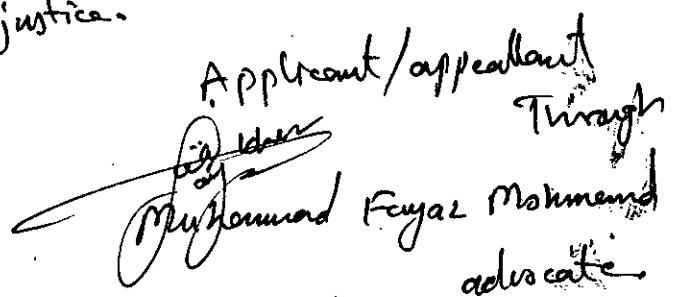 justice.
Applicant/appeallant
Through
Muhammad Fayaz Mohmand
advocate.